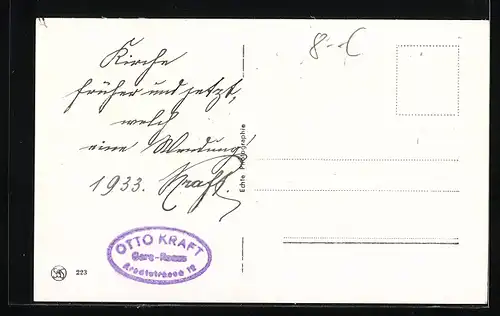 Kirche
früher und jetzt,
welch
eine Wendung!
1933. Kraft.
8.-
Echte Photographie
OTTO KRAFT
Gera-Reuss
Arndtstrasse 12
223